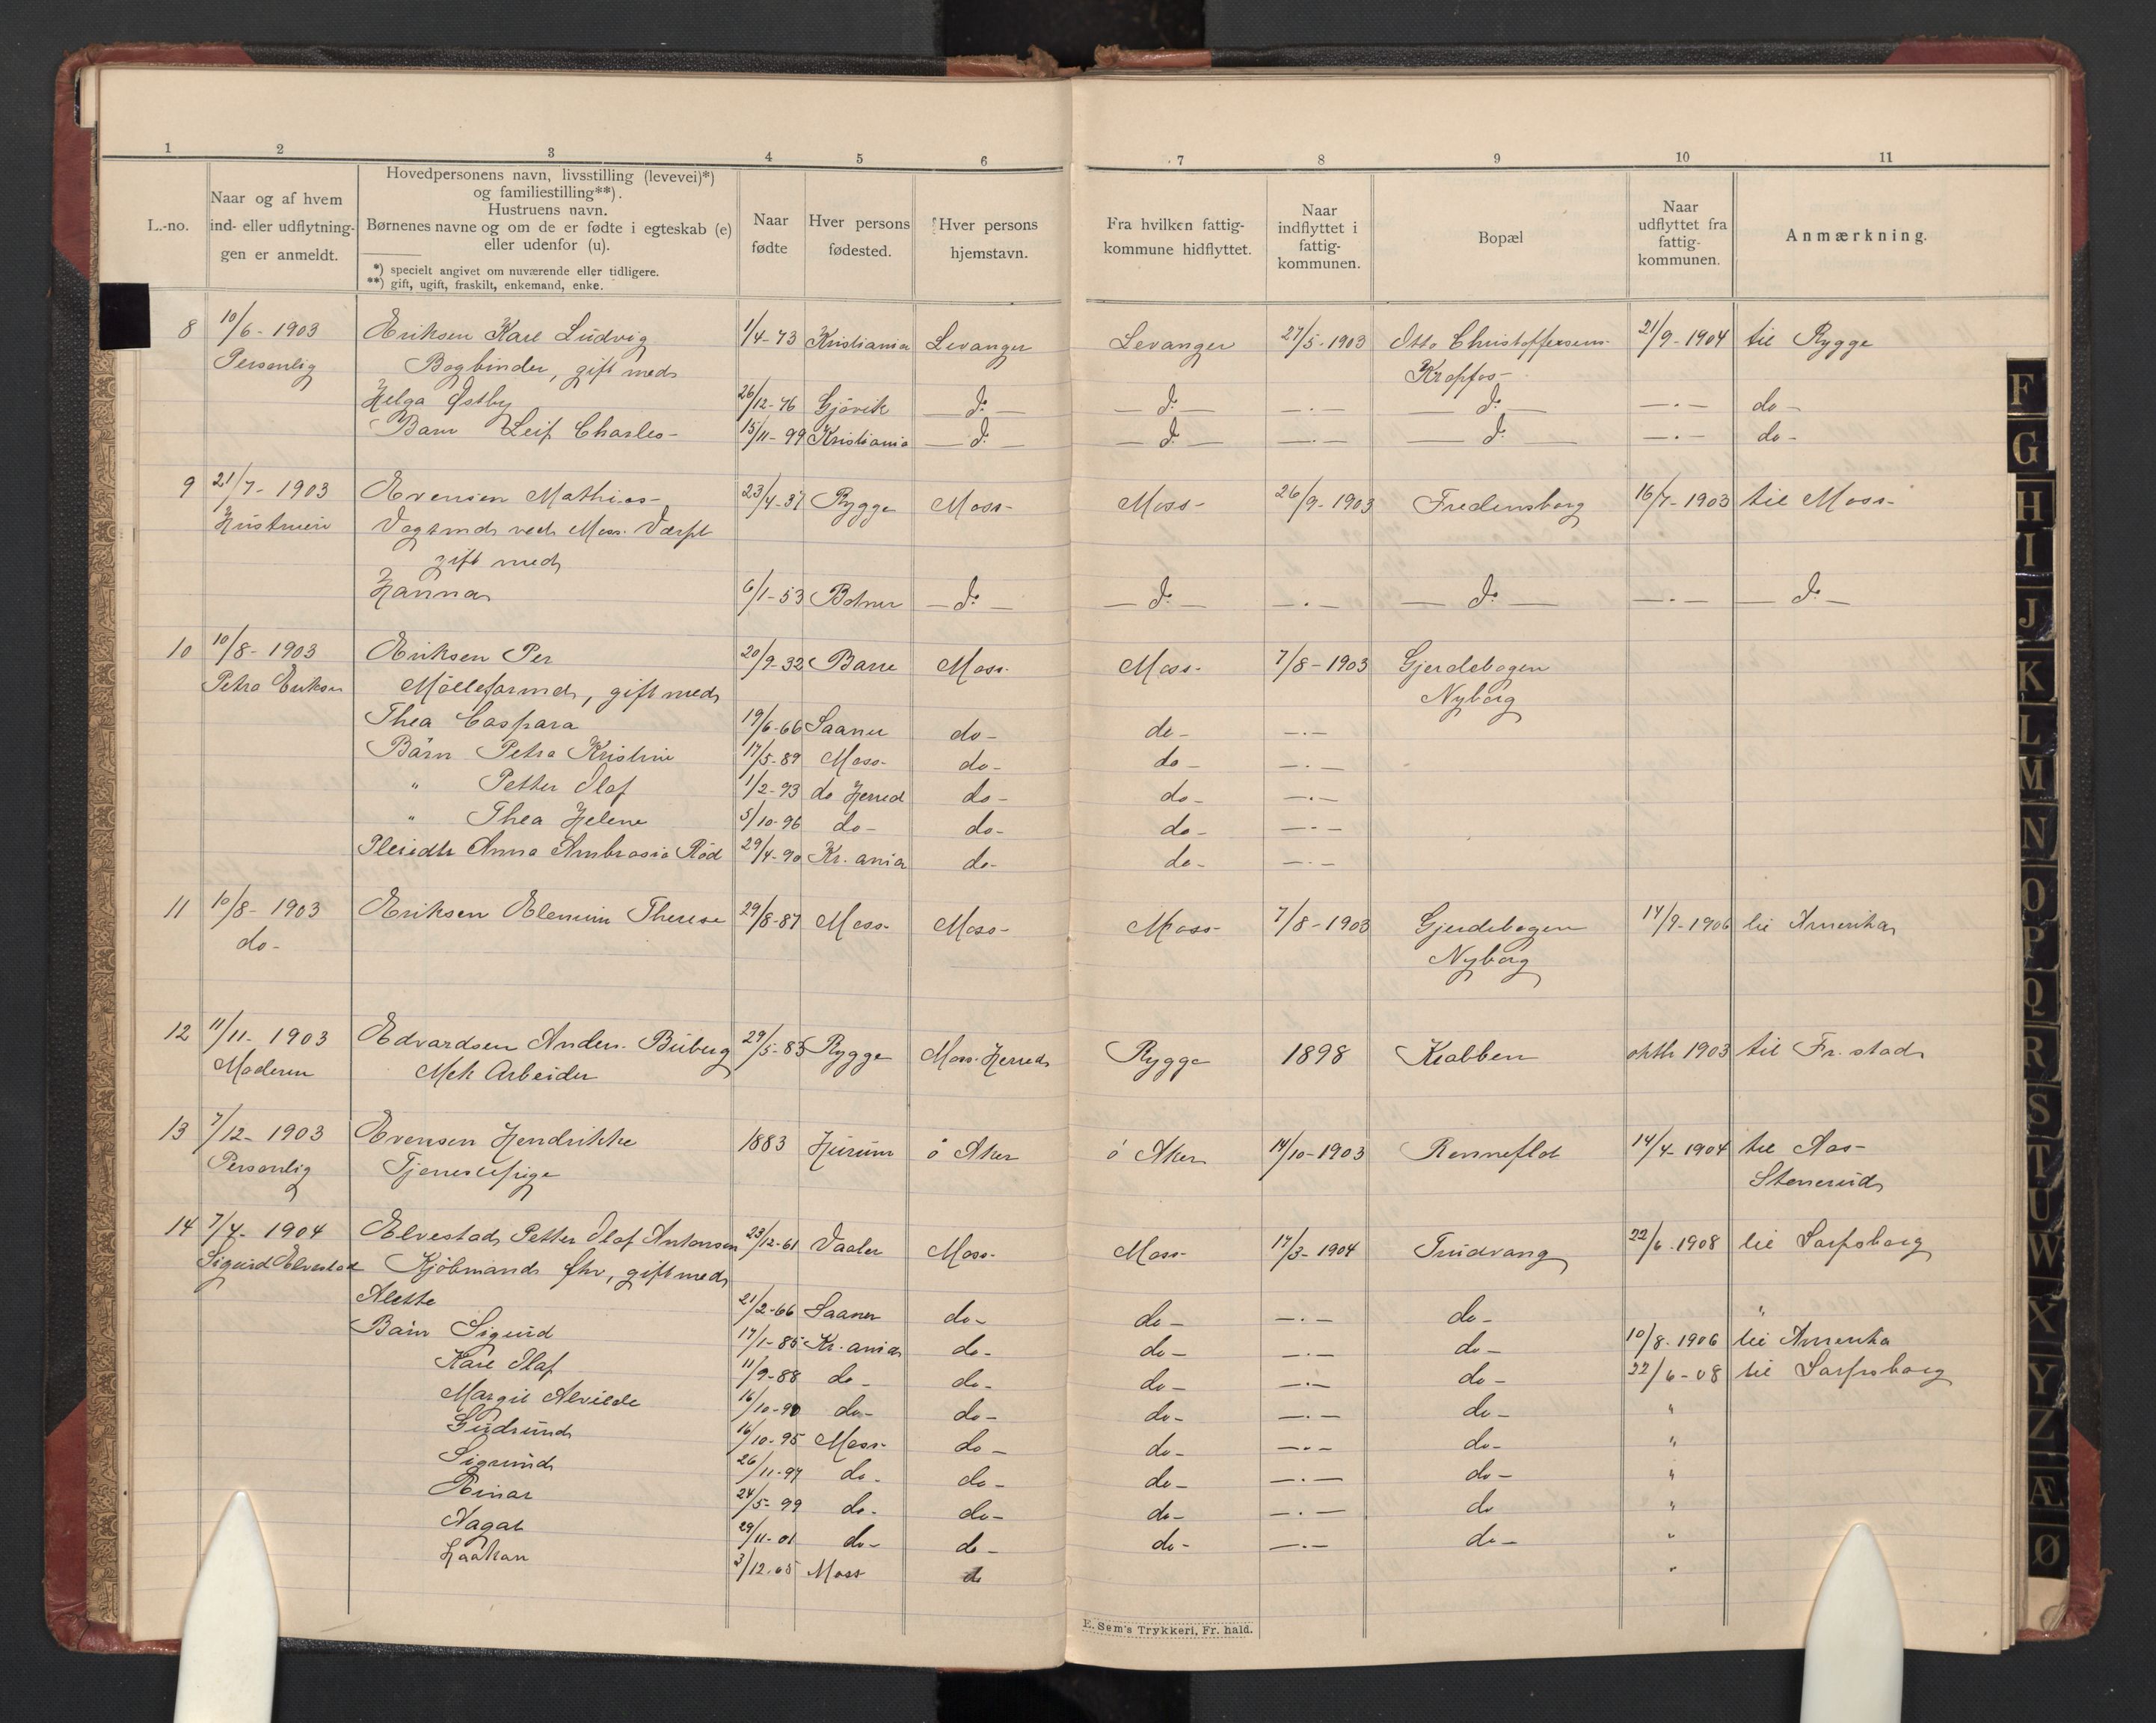 1 2 3 4 5 6 7 8 9 10 11
L.-no.
Naar og af hvem
ind- eller udflytnin-
gen er anmeldt.
Hovedpersonens navn, livsstilling (levevei)*)
og familiestilling**).
Hustruens navn.
Børnenes navne og om de er fødte i egteskab (e)
eller udenfor (u).
*) specielt angivet om nuværende eller tidligere.
**) gift, ugift, fraskilt, enkemand, enke.
Naar
fødte
Hver persons
fødested.
Hver persons
hjemstavn.
Fra hvilken fattig-
kommune hidflyttet.
Naar
indflyttet i
fattig-
kommunen.
Bopæl
Naar
udflyttet fra
fattig-
kommunen.
Anmærkning.
8 10/6 - 1903 Eriksen Karl Ludvig 1/4-73 Kristiania Levanger Levanger 27/5-1903 Otto Christoffersens- 21/9-1904 til Rygge
Personlig Bogbinder, gift med Kropfos-
Helga Østby 26/12-76 Gjøvik — do — — do — —·— — do — —·— do-
Barn Leif Charles- 15/11-99 Kristiania — do — — do — —·— — do — —·— do-
9 21/7- 1903 Evensen Mathias- 23/4-37 Rygge Moss- Moss- 26/9-1903 Fredensborg 16/7-1903 til Moss-
Hustruen Vagtmd ved Moss. Værft
gift med
Hanna 6/1-53 Botner — do — — do — —·— — do — —·— — do —
10 10/8- 1903 Eriksen Per 20/9-32 Barre Moss- Moss- 7/8-1903 Gjerdebogen
Petra Eriksen Mølleformd, gift med Nyborg
Thea Caspara 19/6-66 Saaner do- do- —·—
Børn Petra Kristine 17/5-89 Moss- do- do- —·—
" Petter Olaf 1/2-93 do Herred do- do- —·—
" Thea Helene 5/10-96 do- do- do- —·—
Pleiedtr Anna Ambrosia Rød 29/4-90 Kr.ania do- do- —·—
11 10/8- 1903 Eriksen Elenine Therese 29/8-87 Moss- Moss- Moss- 7/8-1903 Gjerdebogen 14/9-1906 til Amerika
do- Nyborg
12 11/11- 1903 Edvardsen Anders. Biberg 29/5-85 Rygge Moss. Herred Rygge 1898 Krabben oktb 1903 til Fr.stad
Moderen Mek Arbeider
13 7/12- 1903 Evensen Hendrikke 1883 Hurum ø Aker ø Aker 14/10-1903 Renneflot 14/4-1904 til Aas-
Personlig Tjenestepige Stenerud
14 7/4- 1904 Elvestad Petter Olaf Antonsen 23/12-61 Vaaler Moss- Moss- 17/3-1904 Trudvang 22/6-1908 til Sarpsborg
Sigurd Elvestad Kjøbmand fhv, gift med
Alette 21/2-66 Saaner do- do- —·— do- "
Børn Sigurd 17/1-85 Kr.ania do- do- —·— do- 10/8-1906 til Amerika
Karl Olaf 11/9-88 do- do- do- —·— do- 22/6-08 til Sarpsborg
Margit Alvilde 16/10-90 do- do- do- —·— do- "
Gudrund 16/10-95 Moss- do- do- —·— do- "
Sigrund 26/11-97 do- do- do- —·— do- "
Einar 24/5-99 do- do- do- —·— do "
Aagot 29/11-01 do- do- do- —·— do- "
Haakan 3/12-05 Moss do "
E. Sem's Trykkeri, Fr. hald.
F
G
H
I
J
K
L
M
N
O
P
Q
R
S
T
U
W
X
Y
Z
Æ
Ø